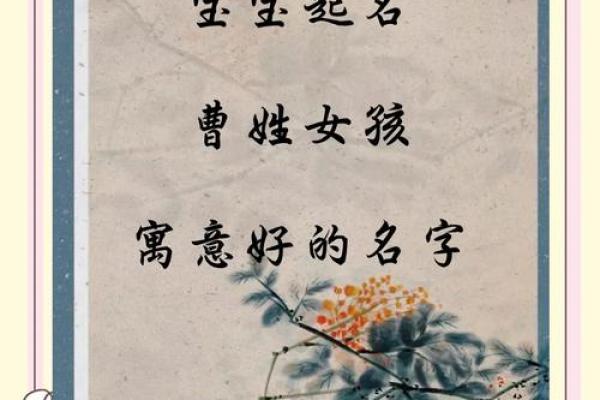 宝宝起名
曹姓女孩
寓意好的名字